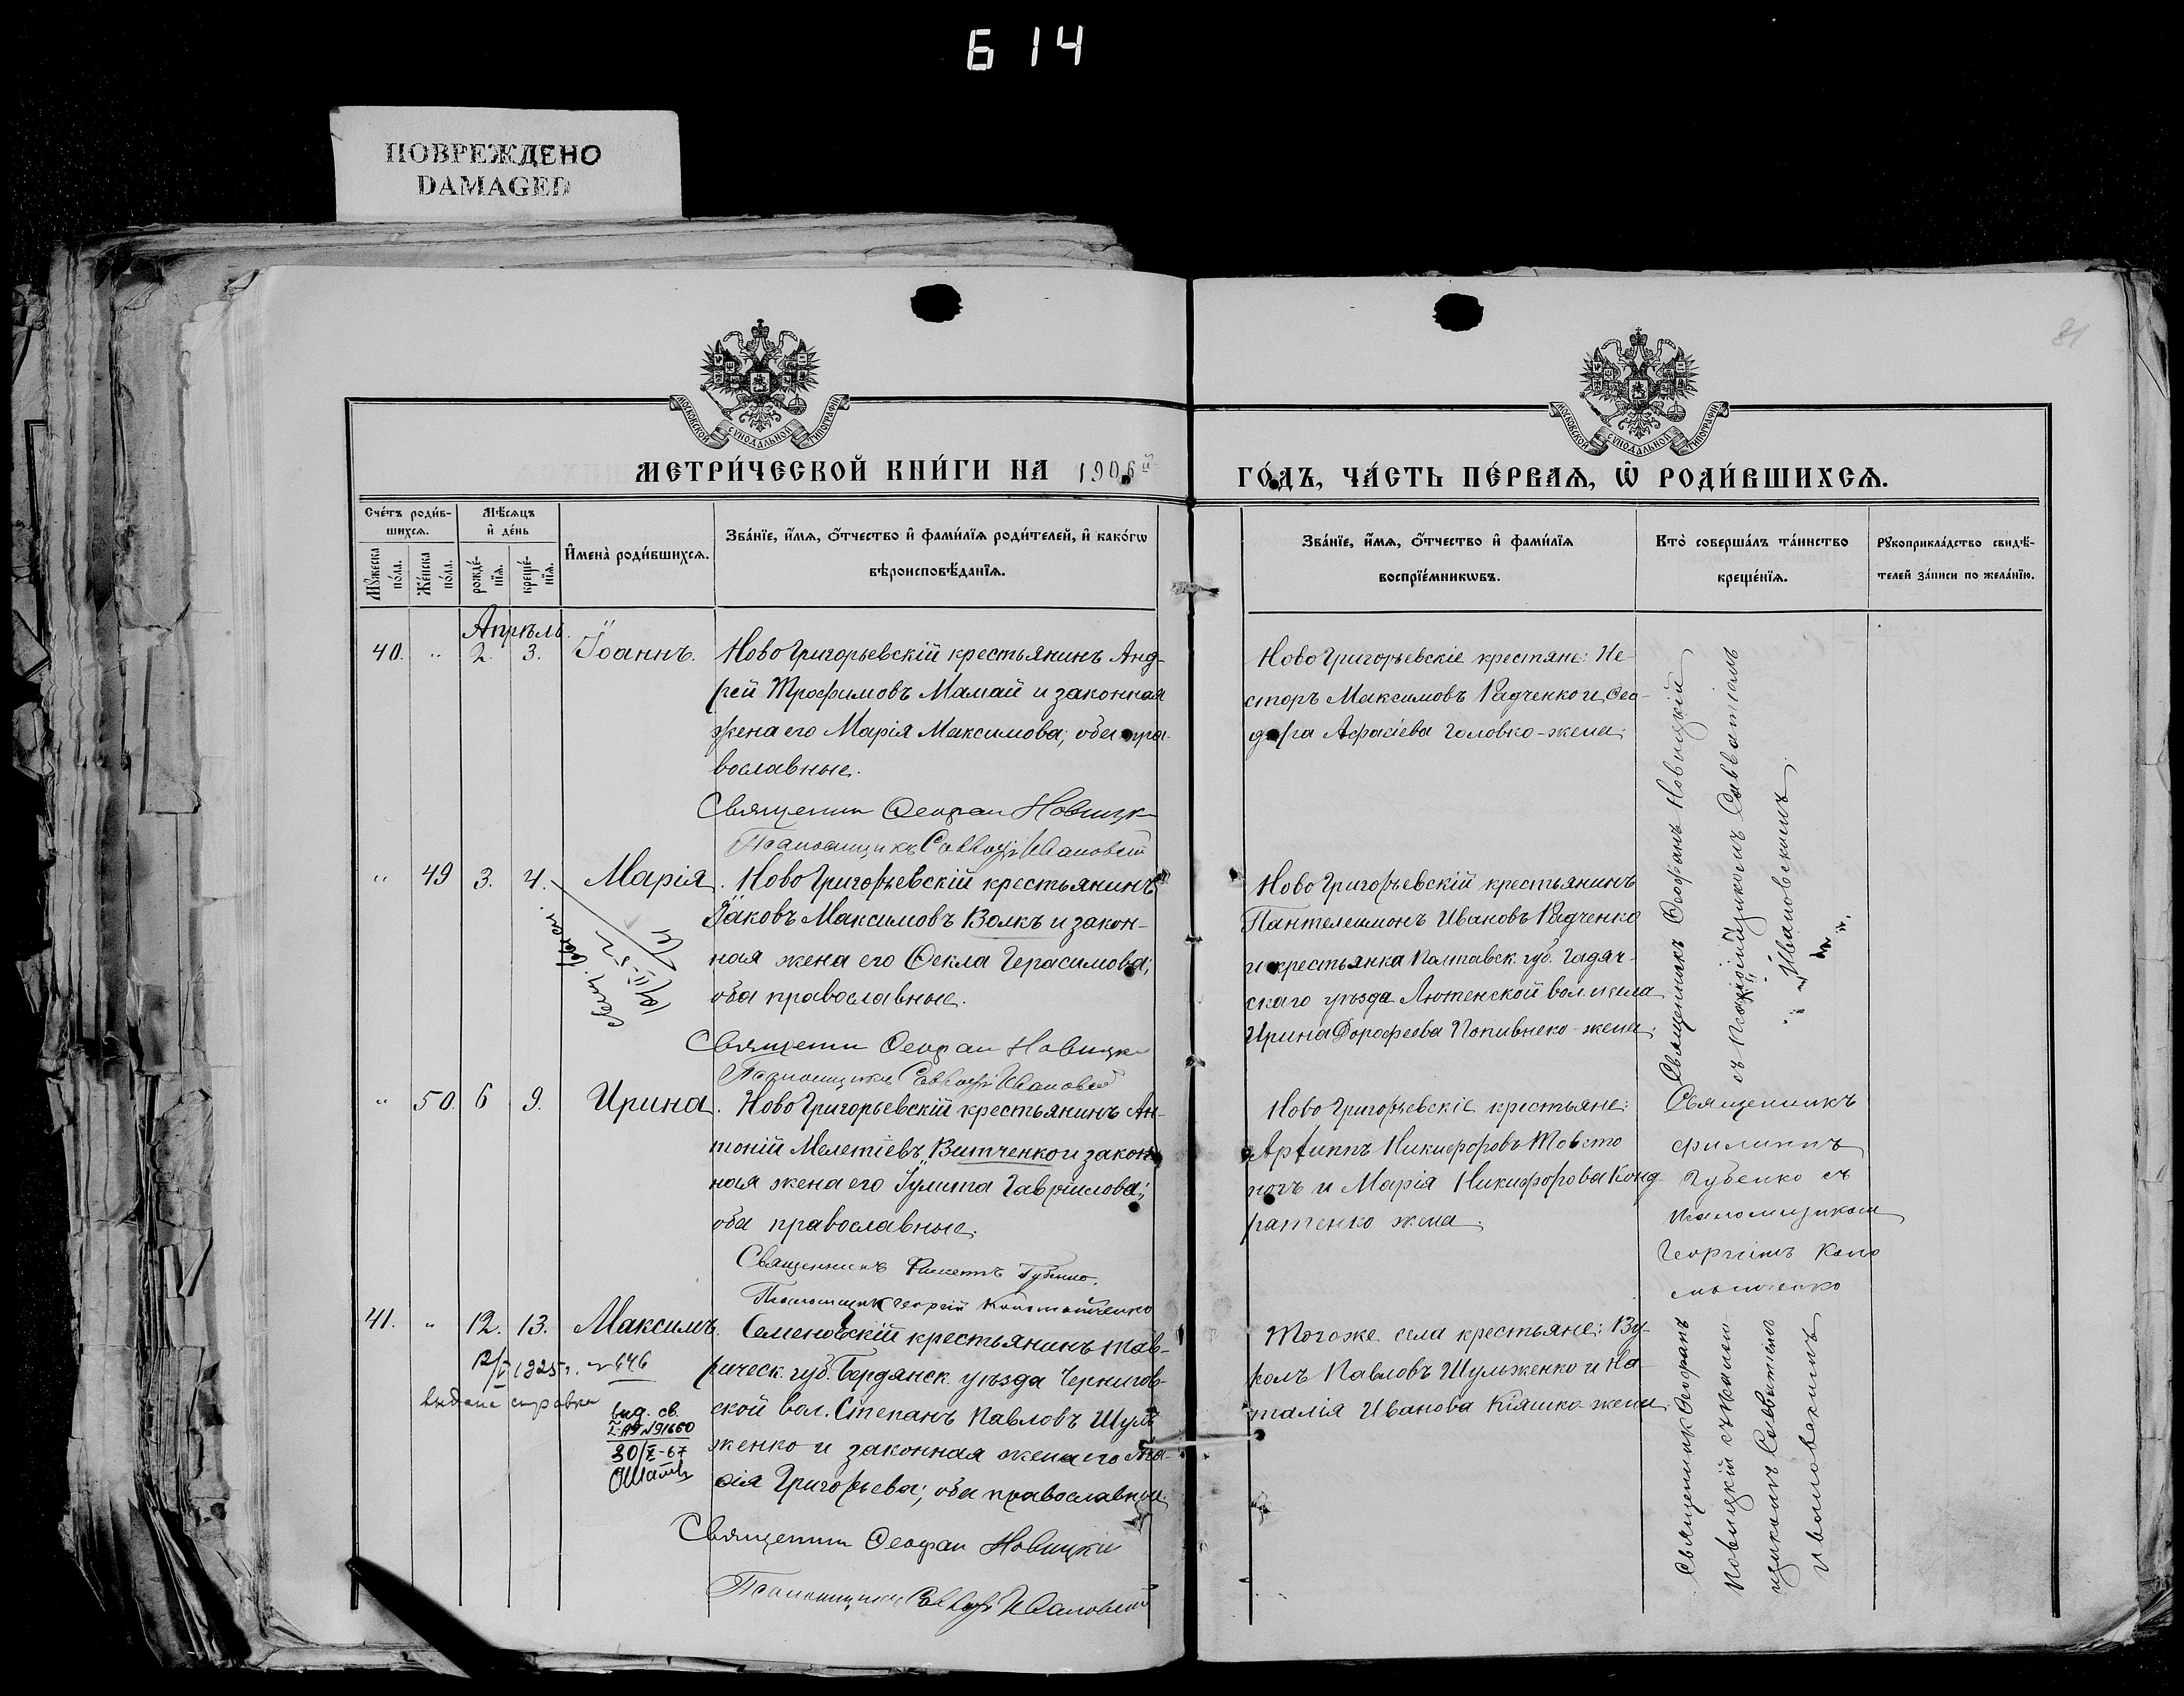 614
ПОВРЕЖДЕНО
DAMAGED
81
МОСКОВСКОЙ СѴНОДАЛЬНОЙ ТИПОГРАФІИ
МОСКОВСКОЙ СѴНОДАЛЬНОЙ ТИПОГРАФІИ
МЕТРИ́ЧЕСКОЙ КНИ́ГИ НА 1906й
ГО́ДЪ, ЧА́СТЬ ПЕ́РВАѦ, Ѡ҆ РОДИ́ВШИХСѦ.
Сче́тъ роди́в-
шихсѧ.
Мꙋжеска по́ла.
Же́нска по́ла.
Мѣ́сѧцъ
и҆ де́нь
рожде́-
нїѧ.
креще́-
нїѧ.
И҆мена̀ роди́вшихсѧ.
Зва́нїе, и҆́мѧ, ѻ҆́тчество и҆ фами́лїѧ роди́телей, и҆ како́гѡ
вѣроисповѣ́данїѧ.
Зва́нїе, и҆́мѧ, ѻ҆́тчество и҆ фами́лїѧ
воспрїе́мникѡвъ.
Кто̀ соверша́лъ та́инство
креще́нїѧ.
Рꙋкоприкла́дство свидѣ́-
телей за́писи по жела́нїю.
Апрѣль.
40. " 2. 3. Іоаннъ.
НовоГригорьевскій крестьянинъ Анд-
рей Трофимовъ Мамай и законная
жена его Марія Максимова; оба пра-
вославные.
Священник Феофан Новицк
Псаломщикъ Савватій Ивановский
НовоГригорьевскіе крестяне: Не-
сторъ Максимовъ Радченко и Фео-
дора Афасіева Головко-жена.
Священникъ Феофанъ Новицкій
съ Псаломщикомъ Савватіемъ
Ивановскимъ.
" 49 3. 4. Марія.
НовоГригорьевскій крестьянинъ
Іаковъ Максимовъ Волкъ и закон-
ная жена его Фекла Герасимова;
оба православные.
Священник Феофан Новицки
Псаломщикъ Савватій Ивановский
НовоГригорьевскій крестьянинъ
Пантелеимонъ Ивановъ Радченко
и крестьянка Полтавск. губ. Гадяч-
скаго уѣзда Лютенской вол.
Ирина Дорофеева Попивнеко-жена.
" 50. 6 9. Ирина.
НовоГригорьевскій крестьянинъ Ан-
тоній Мелетіевъ Витченко и закон-
ная жена его Іулита Гавріилова;
оба православные.
Священникъ Филиппъ Губенко.
Псаломщик Георгій
НовоГригорьевскіе крестьяне:
Архиппъ Никифоровъ Товсто
ногъ и Марія Никифорова Конд-
ратенко жена.
Священникъ
Филиппъ
Губенко съ
псаломщиком
Георгіемъ
41. " 12. 13. Максимъ.
12/V 1925 г. № 446
выдана справка
Выд. св.
I-АЯ №91660
30/X-67
Семеновскій крестьянинъ Тав-
рическ. губ. Бердянск. уѣзда Чернигов-
ской вол. Степанъ Павловъ Шуль
женко и законная жена его Ана-
сія Григорьева; оба православные.
Священник Феофан Новицки
Псаломщикъ Савватій Ивановский
Тогоже села крестьяне: Ву-
колъ Павловъ Шульженко и На-
талія Иванова Кіяшко жена.
Священник Феофан
Новицкій съ псалом-
щикомъ Савватіемъ
Ивановскимъ